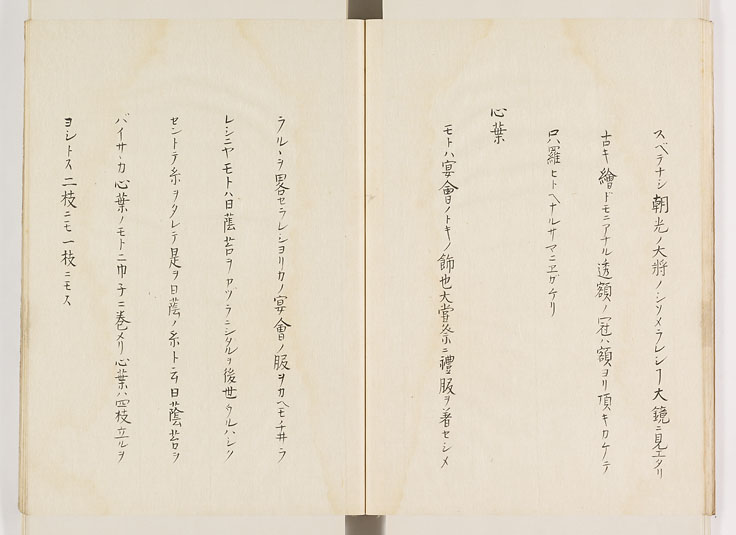 スベラナシ朝光ノ大將ノシソメラレシヿ大鏡ニ見エタリ
古キ繪ドモニアナル透額ノ冠ハ額ヨリ頂キカケテ
只羅ヒトヘナルサマニヱガケリ
心葉
モトハ宴會ノトキノ飾也大嘗祭ニ禮服ヲ著セシメ
ラルヽヲ畧セラレシヨリカノ宴會ノ服ヲカヘモチ井ラ
レシニヤモトハ日蔭苔ヲカツラニシタルヲ後世ウルハシク
セントテ糸ヲクレテ是ヲ日蔭ノ糸ト云日蔭苔ヲ
バイサヽカ心葉ノモトニ巾子ニ巻メリ心葉ハ四枝立ルヲ
ヨシトス二枝ニモ一枝ニモス